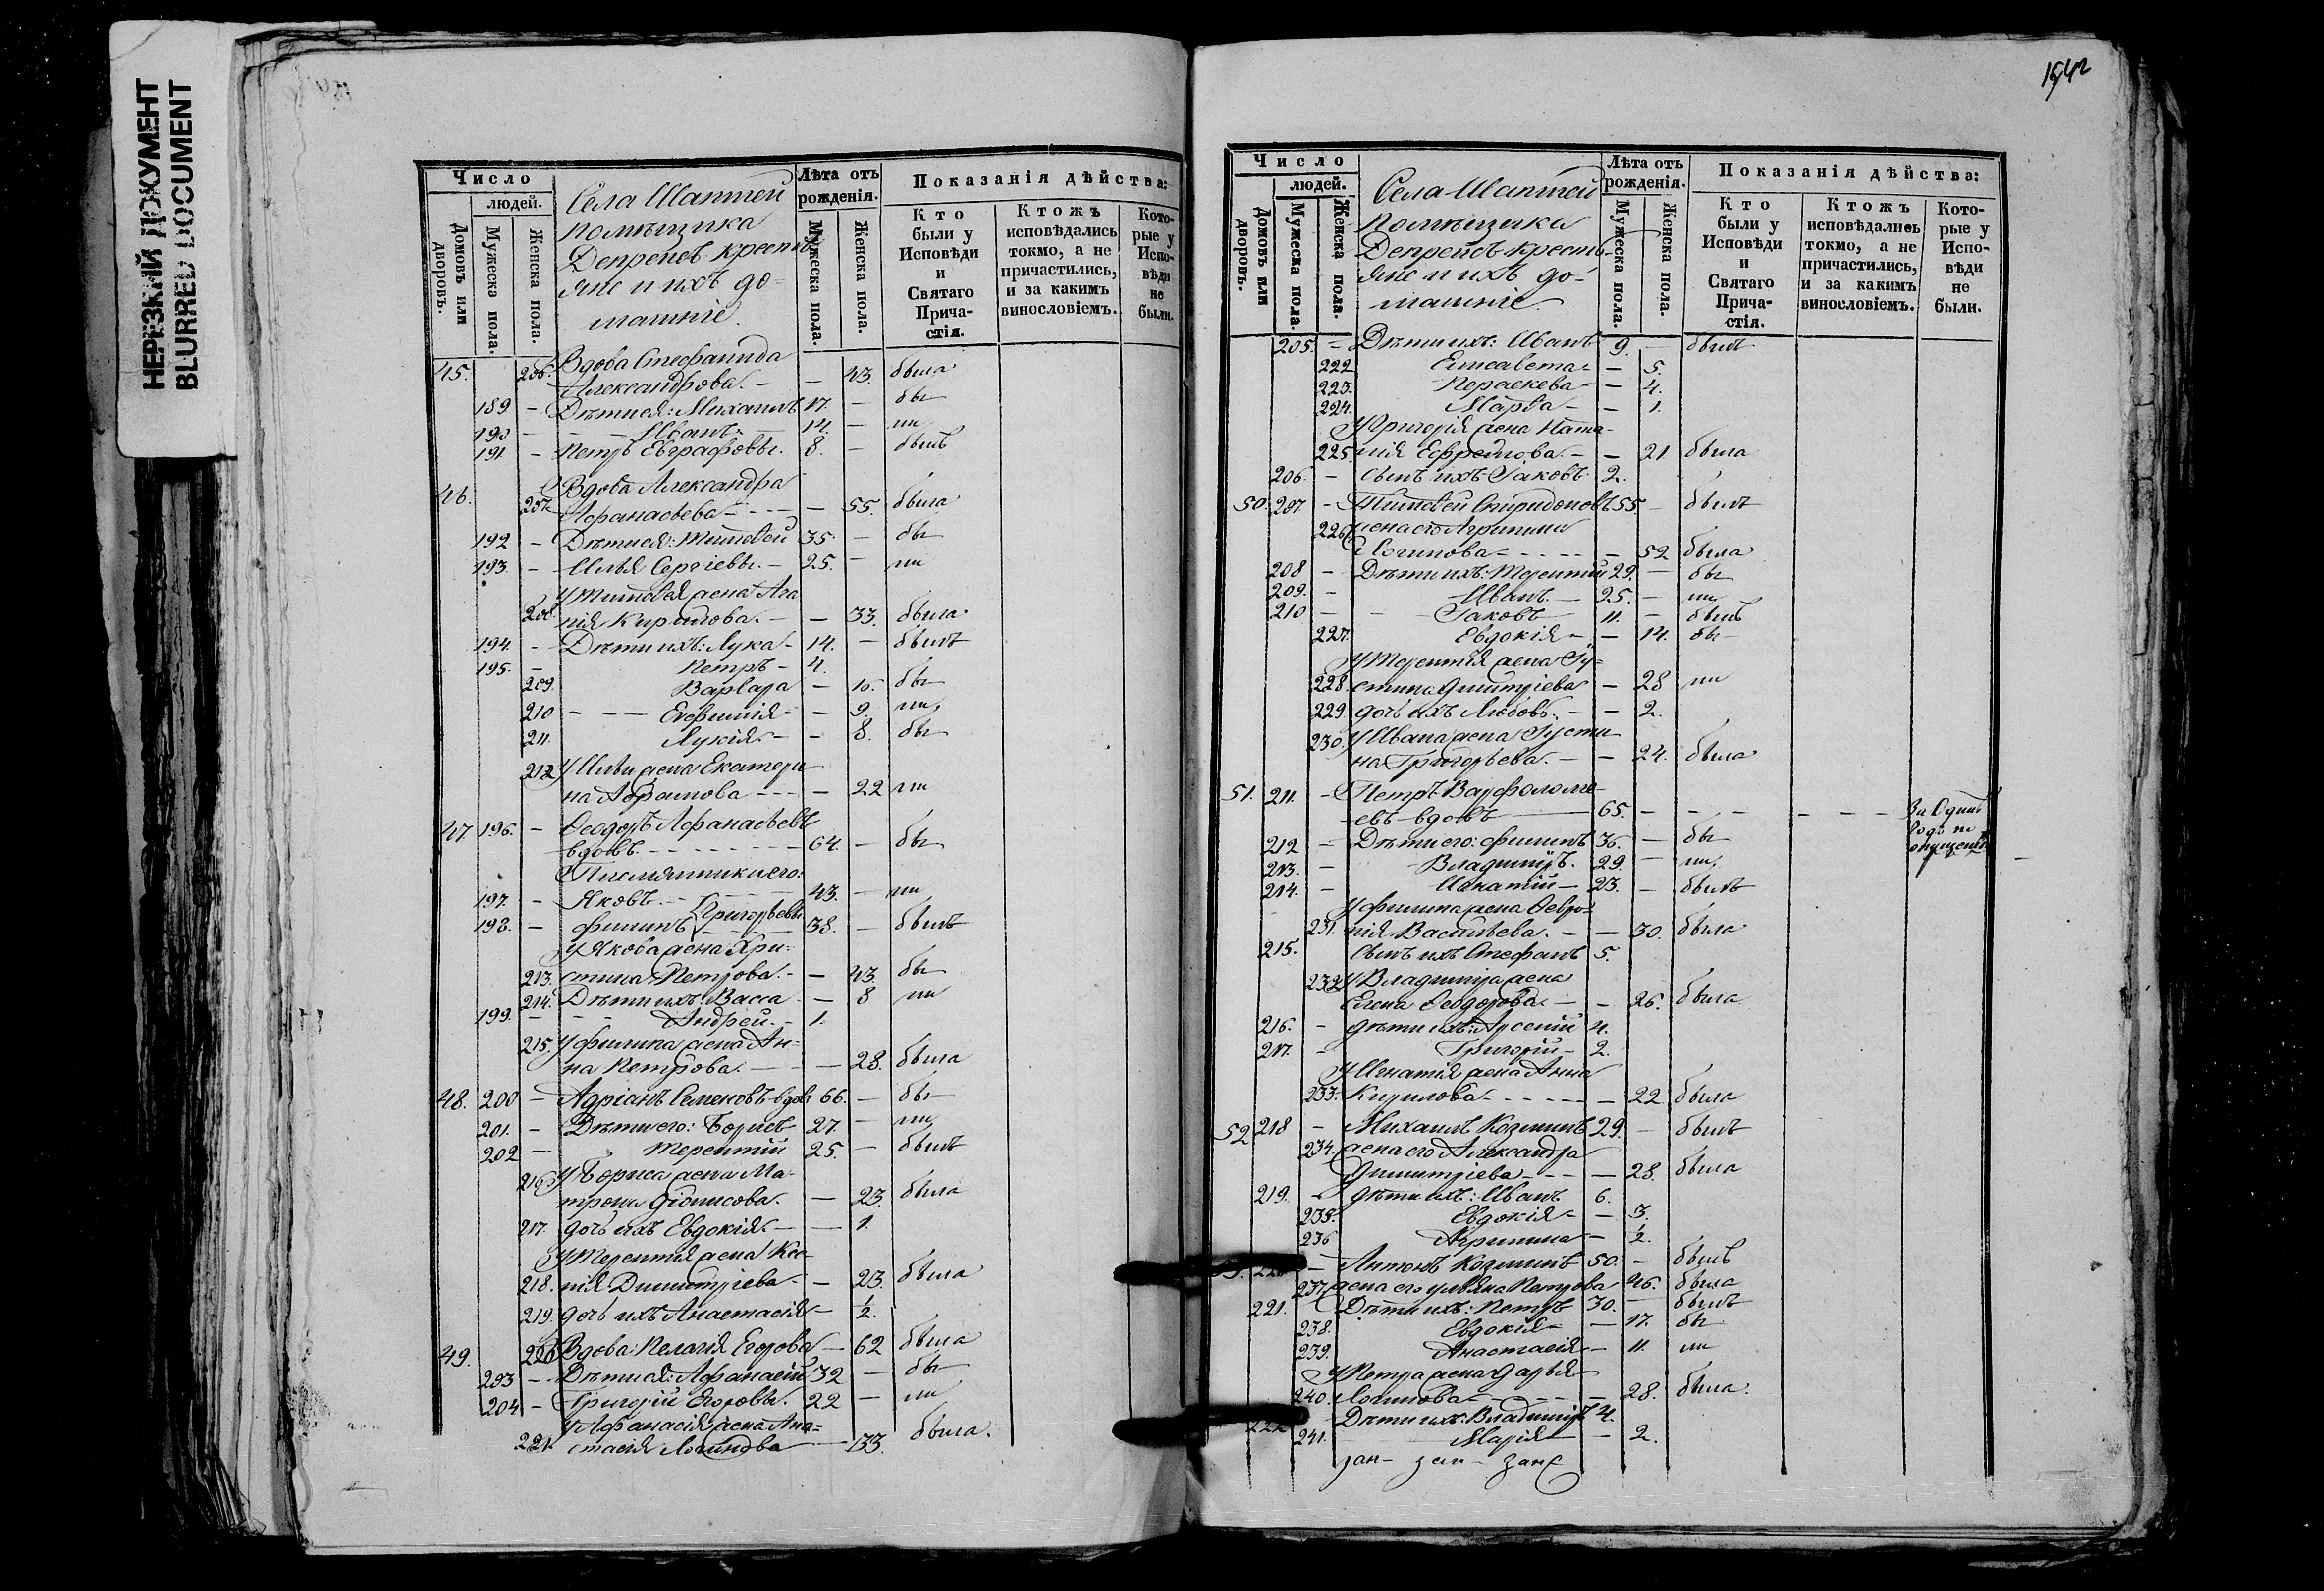 НЕРЕЗКИЙ ДОКУМЕНТ
BLURRED DOCUMENT
Число
людей.
Домовъ или дворовъ.
Мужеска пола.
Женска пола.
Села Шаптей
помѣщика
Депрейсъ крестья
яне и ихъ до-
машніе.
Лѣта отъ рожденія.
Мужеска пола.
Женска пола.
Показанія дѣйства:
Кто были у Исповѣди и Святаго Прича-стія.
Ктожъ исповѣдались токмо, а не причастились, и за какимъ винословіемъ.
Кото-рые у Испо-вѣди не были.
45. 206. Вдова Стефанида
Александрова. - - 43. была
189 - Дѣти ея: Михаилъ 17. - бы
190 - Иванъ - 14. - ли
191 - Петръ Евграфовы. 8. - былъ
46. 207. Вдова Александра
Афанасьева - - - - 55. была
192 - Дѣти ея: Тимофей 35. - бы
193. - Илья Сергіевы. - 25. - ли
У Тимофея жена Ага
208. пія Кирилова. - - 33. была
194. - Дѣти ихъ: Лука - 14. - былъ
195. - Петръ - 4.
209. Варвара - 10. бы
210 - - - Евфимія - - 9. ли
211. Лукія. - - 8. бы
212 У Ильи жена Екатери
на Абрамова - - - - 22 ли
47. 196. - Ѳеодоръ Афанасьевъ
вдовъ. - - - - 64. - бы
Племянники его:
197. - Яковъ. - - - 43. - ли
198. - Филипъ Григорьевы 38. - былъ
У Якова жена Хри-
213. стина Петрова. - - 43. бы
214. Дѣти ихъ: Васса - 8 ли
199. - - Андрей. - 1.
215. У Филипа жена Ан-
на Петрова. - - - 28. была
48. 200 - Адріанъ Семеновъ вдов 66. - бы
201. - Дѣти его: Борисъ 27. - ли
202 - Терентій 25. - былъ
216 У Бориса жена Ма-
трона Діонисова. - 23. была
217. дочь ихъ Евдокія. - - 1.
У Терентія жена Ксе-
218. нія Димитріева - - 23. была
219. дочь ихъ Анастасія - 1/2.
49. 220 Вдова Пелагія Егорова - 62 была
203 - Дѣти ея: Афанасій 32 - бы
204 - Григорій Егоровы. 22 - ли
У Афанасія жена Ана-
221. стасія Логинова - 33. была.
1542
Число
людей.
Домовъ или дворовъ.
Мужеска пола.
Женска пола.
Села Шаптей
помѣщика
Депрейсъ кресть-
яне и ихъ до-
машніе.
Лѣта отъ рожденія.
Мужеска пола.
Женска пола.
Показанія дѣйства:
Кто были у Исповѣди и Святаго Прича-стія.
Ктожъ исповѣдались токмо, а не причастились, и за какимъ винословіемъ.
Кото-рые у Испо-вѣди не были.
205. - Дѣти ихъ: Иванъ 9. - былъ
222 Елисавета - - 5.
223. Параскева - - 4.
224. Марѳа - - 1.
У Григорія жена Ната-
225. лія Ефремова. - - 21 была
206. - сынъ ихъ Іаковъ 2.
50. 207. - Тимофей Спиридоновъ 55. - былъ
226 жена его Агрипина
Логинова - - - - - 52 была
208 - Дѣти ихъ: Терентій 29. - бы
209. - Иванъ. - 25. - ли
210 - - Іаковъ 11. - былъ
227. Евдокія - - 14. бы
У Терентія жена Іу-
228. стина Димитріева - 28 ли
229. дочь ихъ Любовь. - - 2.
230. У Ивана жена Іусти
на Григорьева. - - 24. была
51. 211. - Петръ Варфоломе-
евъ вдовъ 65. - - - - - -
За Одинъ
212 - Дѣти его: Филипъ 36. - бы
213. - Владиміръ. 29. - ли
214. - Игнатій - 23. - былъ
У Филипа жена Февро-
231. нія Васильева. - - 30. была
215. Сынъ ихъ Стефанъ 5.
232 У Владиміра жена
Елена Ѳеодорова - - 26. была
216. - дѣти ихъ: Арсеній 4.
217. - Григорій - 2.
У Игнатія жена Анна
233. Кирилова - - - - - 22 была
52 218 - Михаилъ Козминъ 29. - былъ
234. жена его Александра
Димитріева - - - - 28. была
219. - дѣти ихъ: Иванъ 6.
235. Евдокія - - 3.
236 Агрипина - 1/2.
- Антонъ Козминъ 50. - былъ
237. жена его Ульяна Петрова 46. была
221. Дѣти ихъ: Петръ 30. - былъ
238. Евдокія - - 17. бы
239. Анастасія - 11. ли
У Петра жена Дарья
240. Логинова - - - - 28. была.
222 Дѣти ихъ: Владиміръ 4.
241. Марія - - 2.